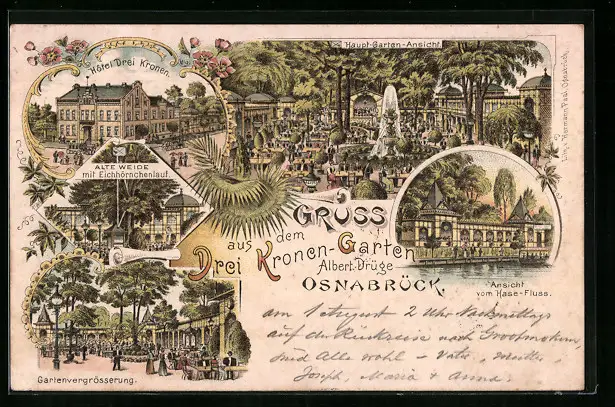 Hôtel Drei Kronen.
Haupt-Garten-Ansicht.
Lith. v. Hermann Paul, Osnabrück.
ALTE WEIDE
mit Eichhörnchenlauf.
GRUSS
aus dem
Drei Kronen-Garten
Albert Drüge
OSNABRÜCK.
Ansicht
vom Hase-Fluss.
Gartenvergrösserung.
am 1 August 2 Uhr Nachmittags
auf der Rückreise nach
sind Alle wohl - Vater, Mutter
Joseph, Maria + Anna.